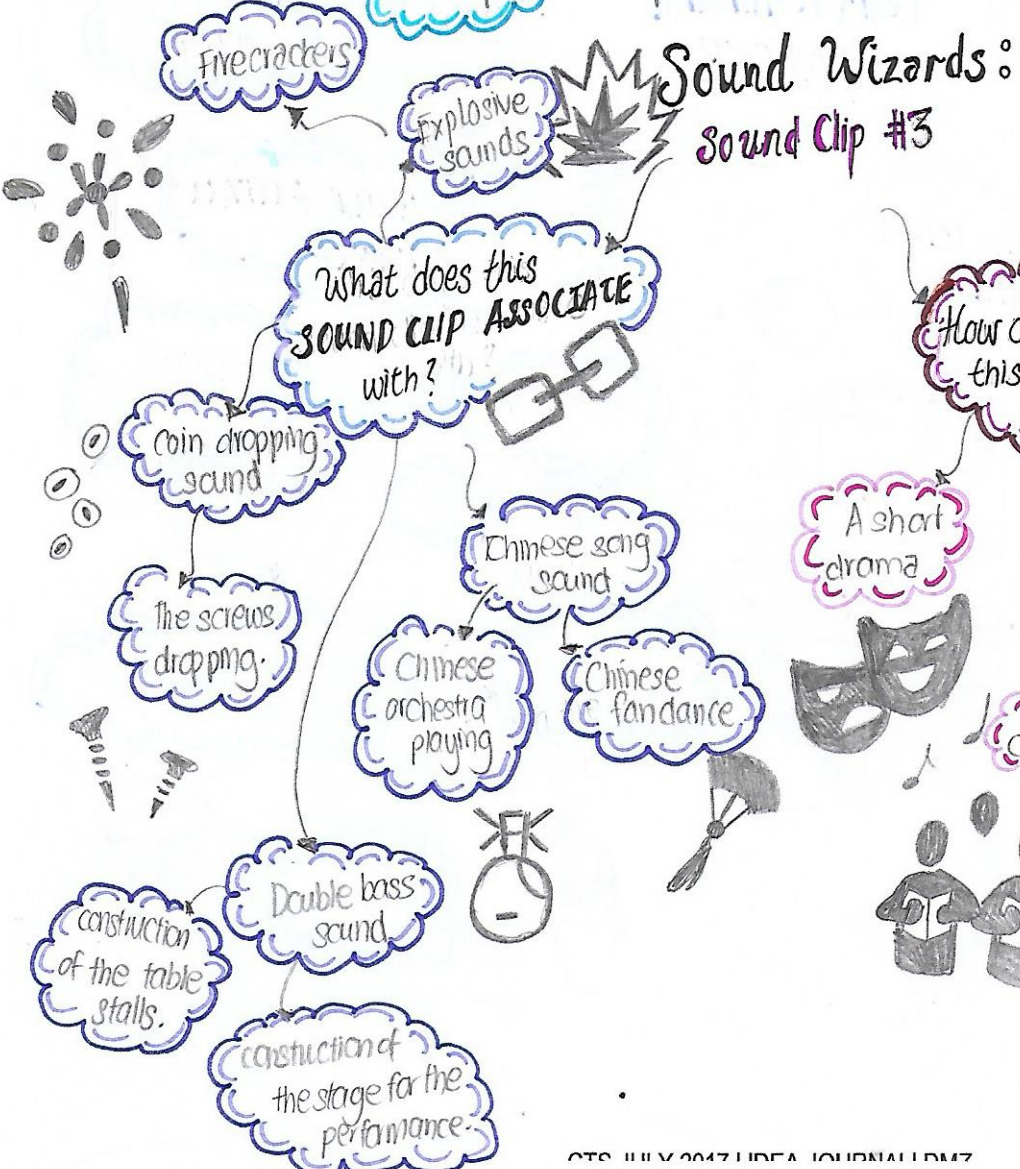 Sound Wizards:
Sound Clip #3
Firecrackers
Explosive
sounds
What does this
SOUND CLIP ASSOCIATE
with?
Coin dropping
sound
The screws
dropping.
Chinese song
sound
Chinese
orchestra
playing
Chinese
fandance
Double bass
sound
construction
of the table
stalls.
constuction of
the stage for the
performance.
How
this
A short
drama
CTS JULY 2017 | IDEA JOURNAL | DMZ